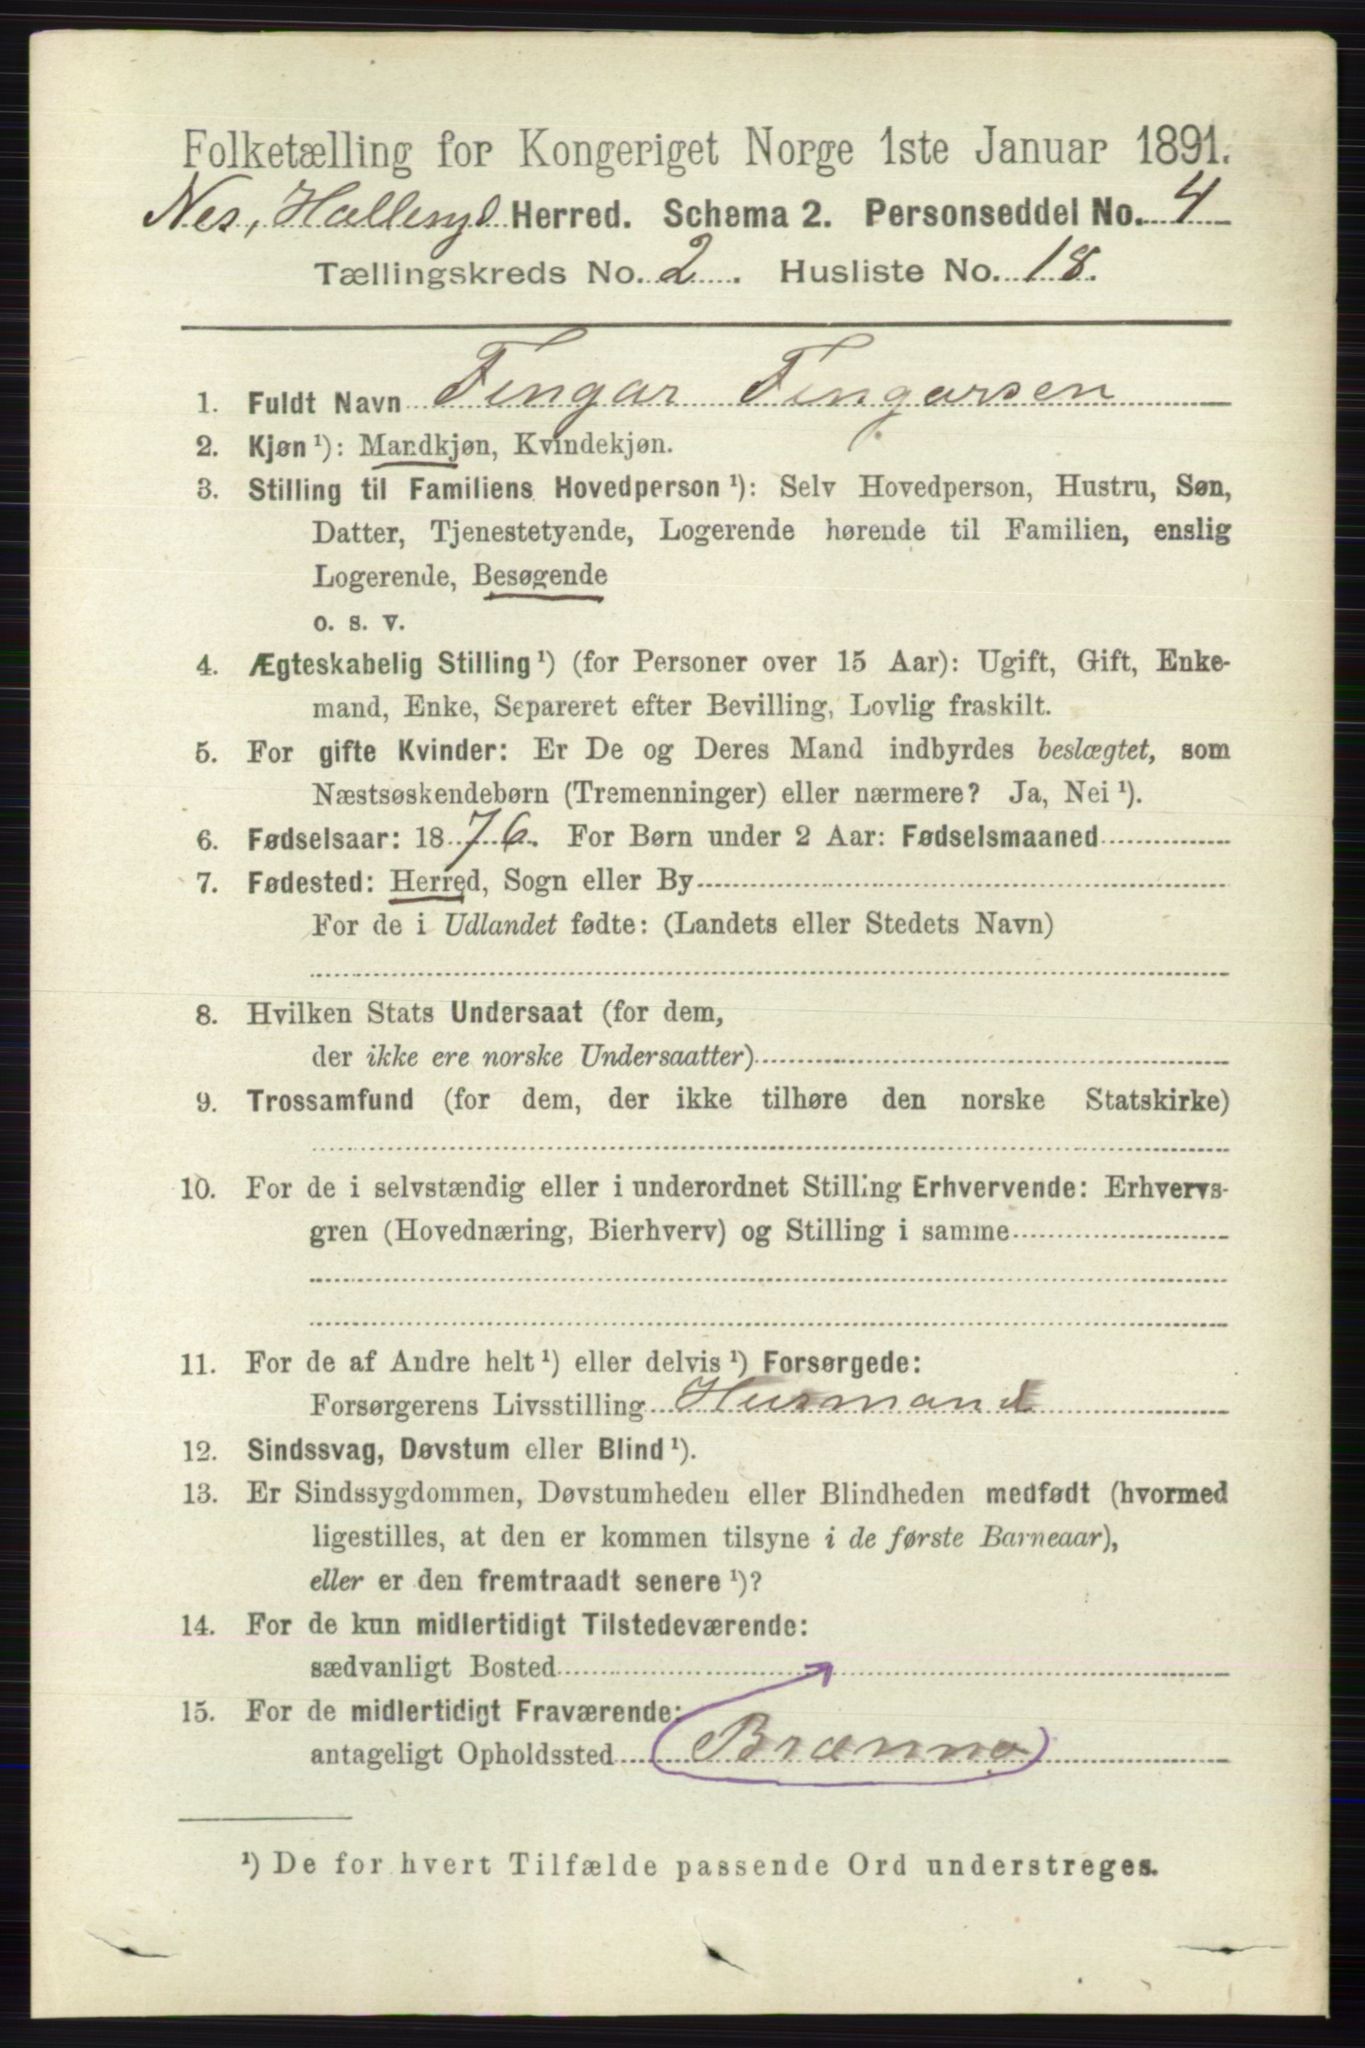 Folketælling for Kongeriget Norge 1ste Januar 1891.
Nes, Herred. Schema 2. Personseddel No. 4
Tællingskreds No. 2. Husliste No. 18.
1. Fuldt Navn Fingar Fingarsen
2. Kjøn ¹): Mandkjøn, Kvindekjøn.
3. Stilling til Familiens Hovedperson ¹): Selv Hovedperson, Hustru, Søn,
Datter, Tjenestetyende, Logerende hørende til Familien, enslig
Logerende, Besøgende
o. s. v.
4. Ægteskabelig Stilling ¹) (for Personer over 15 Aar): Ugift, Gift, Enke-
mand, Enke, Separeret efter Bevilling, Lovlig fraskilt.
5. For gifte Kvinder: Er De og Deres Mand indbyrdes beslægtet, som
Næstsøskendebørn (Tremenninger) eller nærmere? Ja, Nei ¹).
6. Fødselsaar: 1876. For Børn under 2 Aar: Fødselsmaaned
7. Fødested: Herred, Sogn eller By
For de i Udlandet fødte: (Landets eller Stedets Navn)
8. Hvilken Stats Undersaat (for dem,
der ikke ere norske Undersaatter)
9. Trossamfund (for dem, der ikke tilhøre den norske Statskirke)
10. For de i selvstændig eller i underordnet Stilling Erhvervende: Erhvervs-
gren (Hovednæring, Bierhverv) og Stilling i samme
11. For de af Andre helt ¹) eller delvis ¹) Forsørgede:
Forsørgerens Livsstilling Husmand
12. Sindssvag, Døvstum eller Blind ¹).
13. Er Sindssygdommen, Døvstumheden eller Blindheden medfødt (hvormed
ligestilles, at den er kommen tilsyne i de første Barneaar),
eller er den fremtraadt senere ¹)?
14. For de kun midlertidigt Tilstedeværende:
sædvanligt Bosted
15. For de midlertidigt Fraværende:
antageligt Opholdssted Brænno
¹) De for hvert Tilfælde passende Ord understreges.